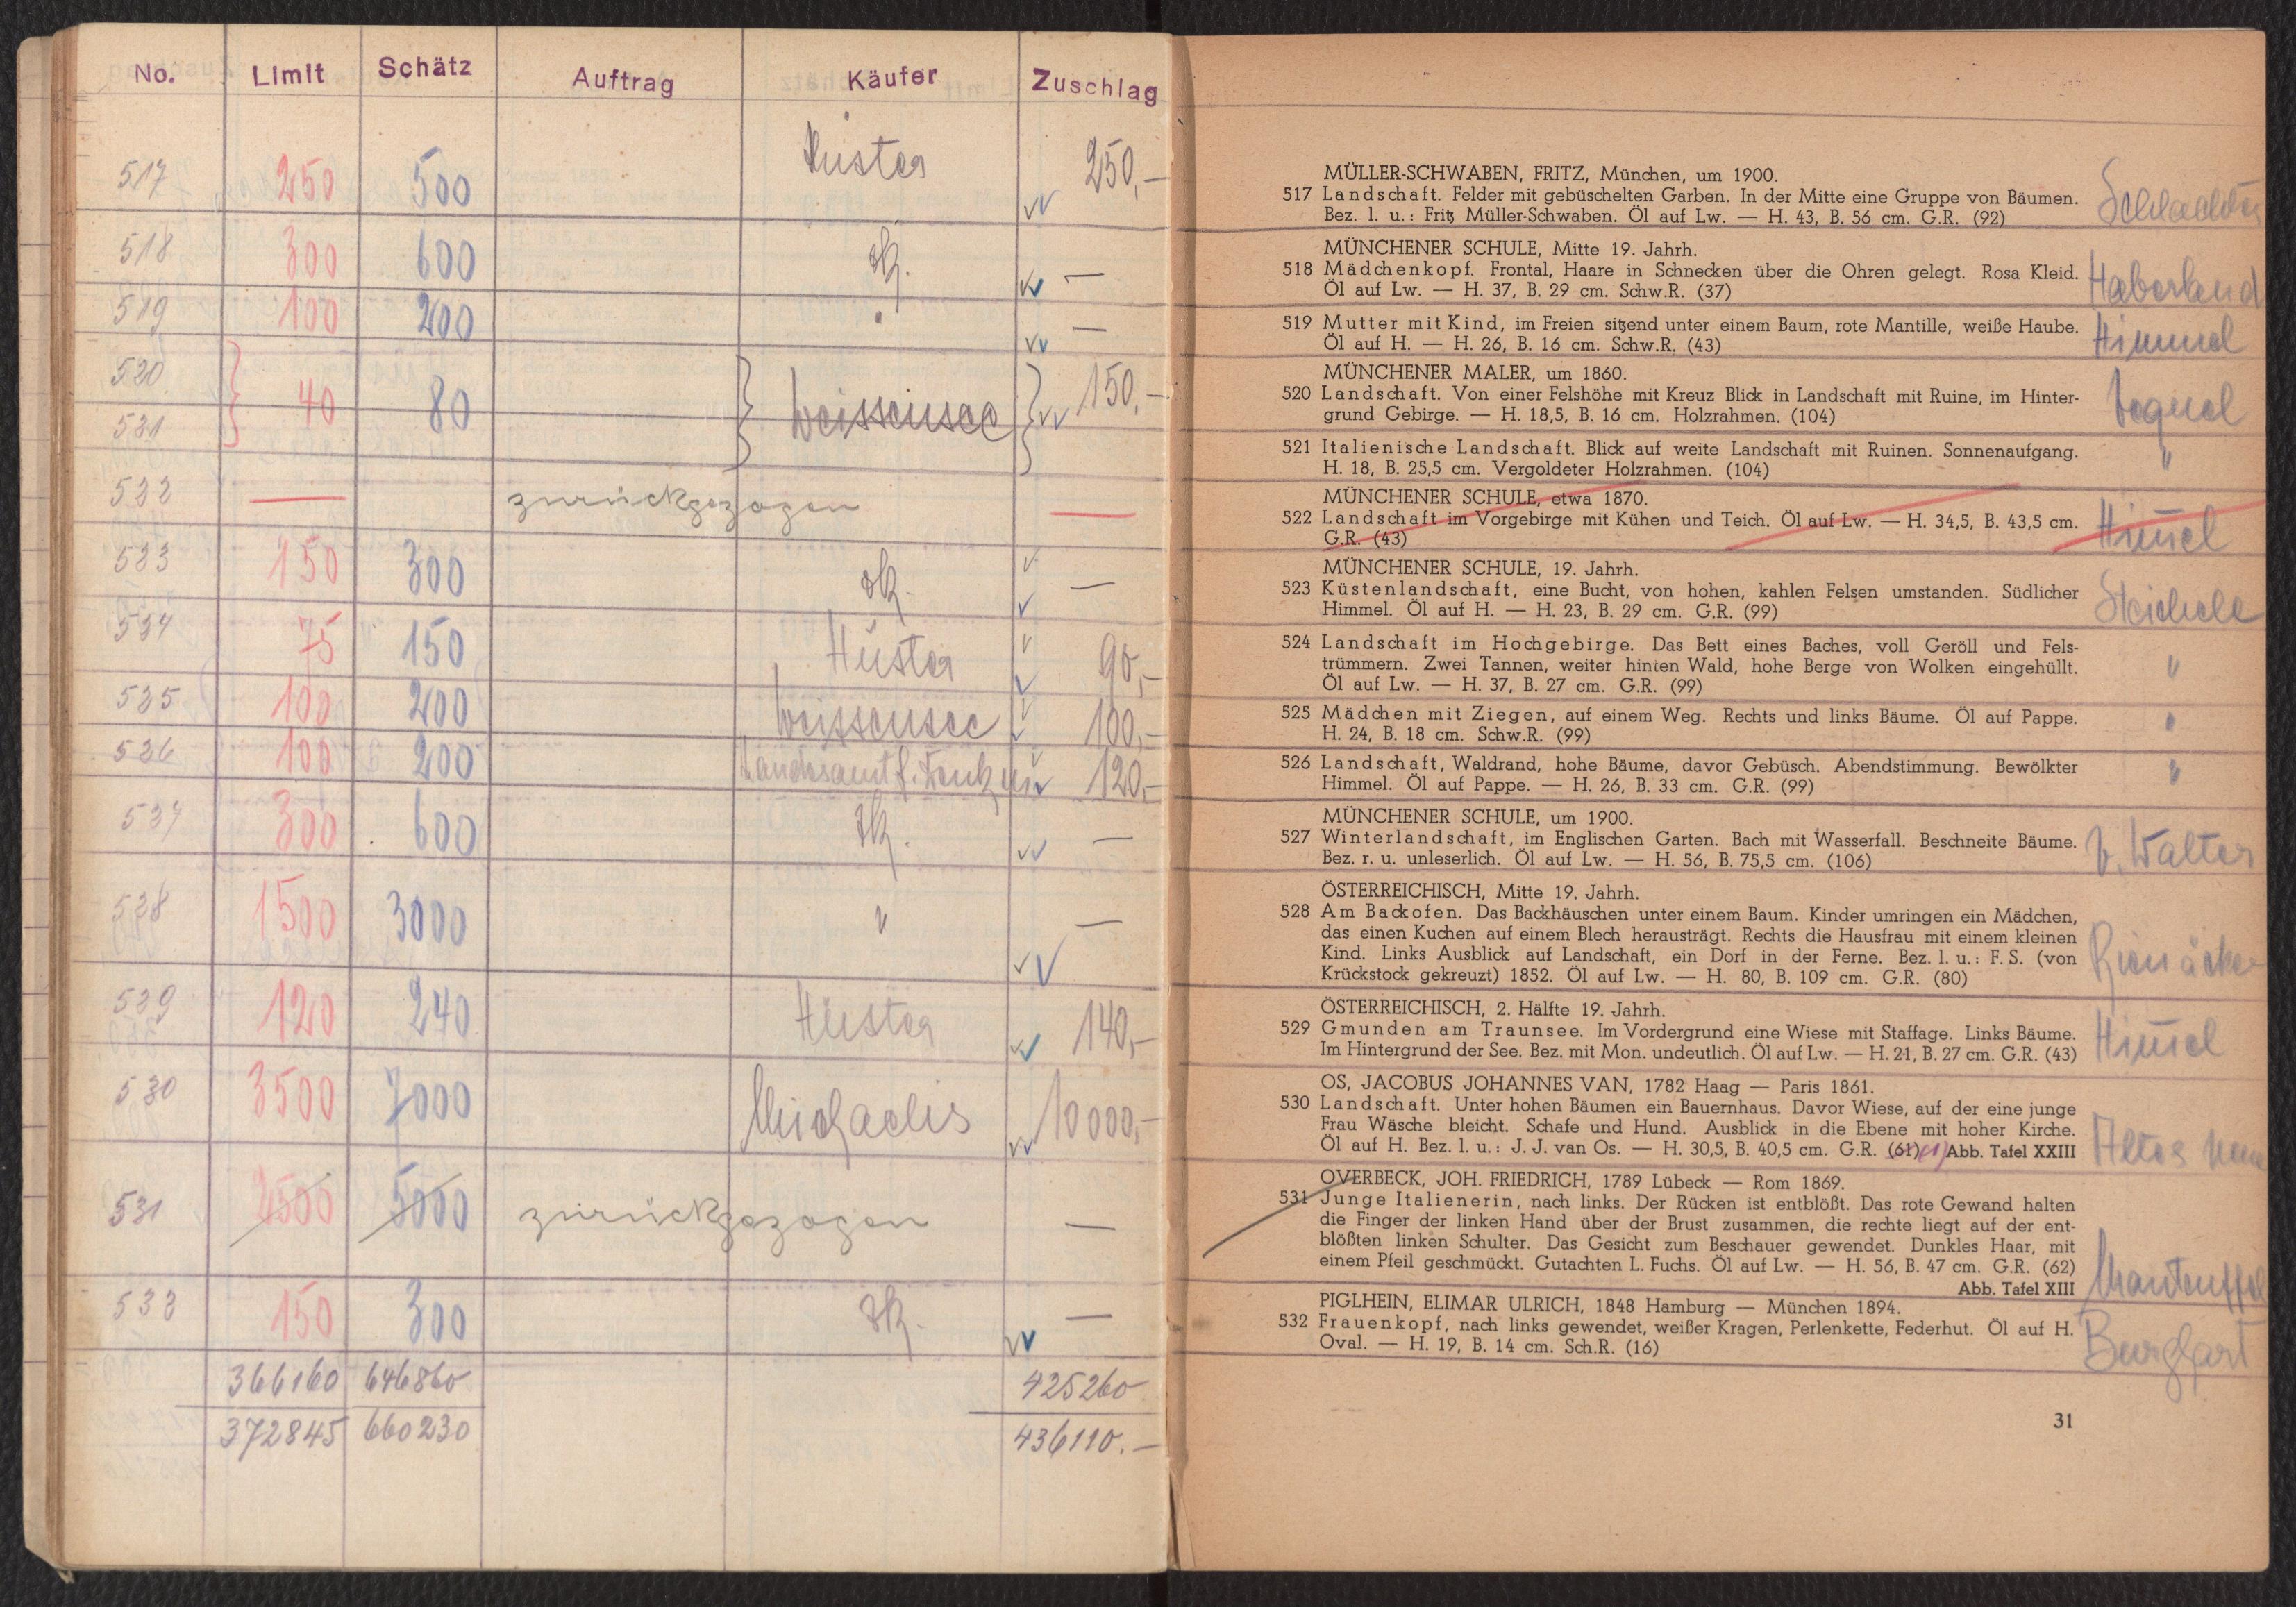 No. Limit Schätz Auftrag Käufer Zuschlag
517 250 500 Hüster 250,—
518 300 600 —
519 100 200 " —
520 40 80 Weissensee 150,—
521
522 — zurückgezogen —
523 150 300 —
524 75 150 Hüster 90,—
525 100 200 Weissensee 100,—
526 100 200 Landesamt f. 120,—
527 300 600 —
528 1500 3000 " —
529 120 240 Hüster 140,—
530 3500 7000 Michaelis 10000,—
531 2500 5000 zurückgezogen —
532 150 300 —
366160 646860 425260
372845 660230 436110.—
MÜLLER-SCHWABEN, FRITZ, München, um 1900.
517 Landschaft. Felder mit gebüschelten Garben. In der Mitte eine Gruppe von Bäumen.
Bez. l. u.: Fritz Müller-Schwaben. Öl auf Lw. — H. 43, B. 56 cm. G.R. (92)
MÜNCHENER SCHULE, Mitte 19. Jahrh.
518 Mädchenkopf. Frontal, Haare in Schnecken über die Ohren gelegt. Rosa Kleid. Haberland
Öl auf Lw. — H. 37, B. 29 cm. Schw.R. (37)
519 Mutter mit Kind, im Freien sitzend unter einem Baum, rote Mantille, weiße Haube. Himmel
Öl auf H. — H. 26, B. 16 cm. Schw.R. (43)
MÜNCHENER MALER, um 1860.
520 Landschaft. Von einer Felshöhe mit Kreuz Blick in Landschaft mit Ruine, im Hinter-
grund Gebirge. — H. 18,5, B. 16 cm. Holzrahmen. (104)
521 Italienische Landschaft. Blick auf weite Landschaft mit Ruinen. Sonnenaufgang. "
H. 18, B. 25,5 cm. Vergoldeter Holzrahmen. (104)
MÜNCHENER SCHULE, etwa 1870.
522 Landschaft im Vorgebirge mit Kühen und Teich. Öl auf Lw. — H. 34,5, B. 43,5 cm. Him̄el
G.R. (43)
MÜNCHENER SCHULE, 19. Jahrh.
523 Küstenlandschaft, eine Bucht, von hohen, kahlen Felsen umstanden. Südlicher Steichele
Himmel. Öl auf H. — H. 23, B. 29 cm. G.R. (99)
524 Landschaft im Hochgebirge. Das Bett eines Baches, voll Geröll und Fels-
trümmern. Zwei Tannen, weiter hinten Wald, hohe Berge von Wolken eingehüllt. "
Öl auf Lw. — H. 37, B. 27 cm. G.R. (99)
525 Mädchen mit Ziegen, auf einem Weg. Rechts und links Bäume. Öl auf Pappe. "
H. 24, B. 18 cm. Schw.R. (99)
526 Landschaft, Waldrand, hohe Bäume, davor Gebüsch. Abendstimmung. Bewölkter "
Himmel. Öl auf Pappe. — H. 26, B. 33 cm. G.R. (99)
MÜNCHENER SCHULE, um 1900.
527 Winterlandschaft, im Englischen Garten. Bach mit Wasserfall. Beschneite Bäume. v. Walter
Bez. r. u. unleserlich. Öl auf Lw. — H. 56, B. 75,5 cm. (106)
ÖSTERREICHISCH, Mitte 19. Jahrh.
528 Am Backofen. Das Backhäuschen unter einem Baum. Kinder umringen ein Mädchen,
das einen Kuchen auf einem Blech herausträgt. Rechts die Hausfrau mit einem kleinen
Kind. Links Ausblick auf Landschaft, ein Dorf in der Ferne. Bez. l. u.: F. S. (von
Krückstock gekreuzt) 1852. Öl auf Lw. — H. 80, B. 109 cm. G.R. (80)
ÖSTERREICHISCH, 2. Hälfte 19. Jahrh.
529 Gmunden am Traunsee. Im Vordergrund eine Wiese mit Staffage. Links Bäume. Him̄el
Im Hintergrund der See. Bez. mit Mon. undeutlich. Öl auf Lw. — H. 21, B. 27 cm. G.R. (43)
OS, JACOBUS JOHANNES VAN, 1782 Haag — Paris 1861.
530 Landschaft. Unter hohen Bäumen ein Bauernhaus. Davor Wiese, auf der eine junge
Frau Wäsche bleicht. Schafe und Hund. Ausblick in die Ebene mit hoher Kirche.
Öl auf H. Bez. l. u.: J. J. van Os. — H. 30,5, B. 40,5 cm. G.R. (61) Abb. Tafel XXIII
OVERBECK, JOH. FRIEDRICH, 1789 Lübeck — Rom 1869.
531 Junge Italienerin, nach links. Der Rücken ist entblößt. Das rote Gewand halten
die Finger der linken Hand über der Brust zusammen, die rechte liegt auf der ent-
blößten linken Schulter. Das Gesicht zum Beschauer gewendet. Dunkles Haar, mit
einem Pfeil geschmückt. Gutachten L. Fuchs. Öl auf Lw. — H. 56, B. 47 cm. G.R. (62)
Abb. Tafel XIII Manteuffel
PIGLHEIN, ELIMAR ULRICH, 1848 Hamburg — München 1894.
532 Frauenkopf, nach links gewendet, weißer Kragen, Perlenkette, Federhut. Öl auf H. Burghart
Oval. — H. 19, B. 14 cm. Sch.R. (16)
31